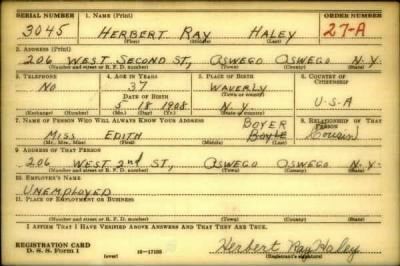 SERIAL NUMBER 1. NAME (Print) ORDER NUMBER
3045 HERBERT RAY HALEY 27-A
(First) (Middle) (Last)
2. ADDRESS (Print)
206 WEST SECOND ST, OSWEGO OSWEGO N.Y.
(Number and street or R. F. D. number) (Town) (County) (State)
3. TELEPHONE 4. AGE IN YEARS 5. PLACE OF BIRTH 6. COUNTRY OF CITIZENSHIP
NO 37 WAVERLY
(Town or county)
DATE OF BIRTH
5 18 1908 N.Y. U-S-A
(Exchange) (Number) (Mo.) (Day) (Yr.) (State or country)
7. NAME OF PERSON WHO WILL ALWAYS KNOW YOUR ADDRESS 8. RELATIONSHIP OF THAT PERSON
BOYER
MISS EDITH Boyle Cousin
(Mr., Mrs., Miss) (First) (Middle) (Last)
9. ADDRESS OF THAT PERSON
206 WEST 2nd ST, OSWEGO OSWEGO N.Y.
(Number and street or R. F. D. number) (Town) (County) (State)
10. EMPLOYER'S NAME
UNEMPLOYED
11. PLACE OF EMPLOYMENT OR BUSINESS
(Number and street or R. F. D. number) (Town) (County) (State)
I AFFIRM THAT I HAVE VERIFIED ABOVE ANSWERS AND THAT THEY ARE TRUE.
REGISTRATION CARD
D. S. S. Form 1 (over) 16-17105 Herbert Ray Haley
(Registrant's signature)